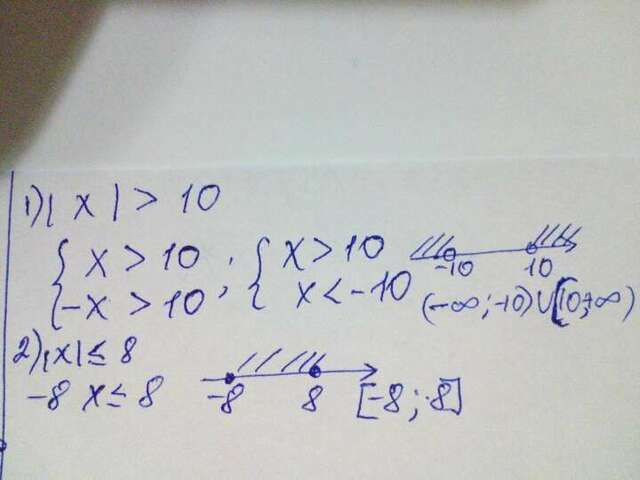 1) |x| > 10
{ x > 10 ; { x > 10 -10 10
{ -x > 10 { x < -10 (-∞; -10) ∪ (10; +∞)
2) |x| ≤ 8
-8 x ≤ 8 -8 8 [-8; 8]